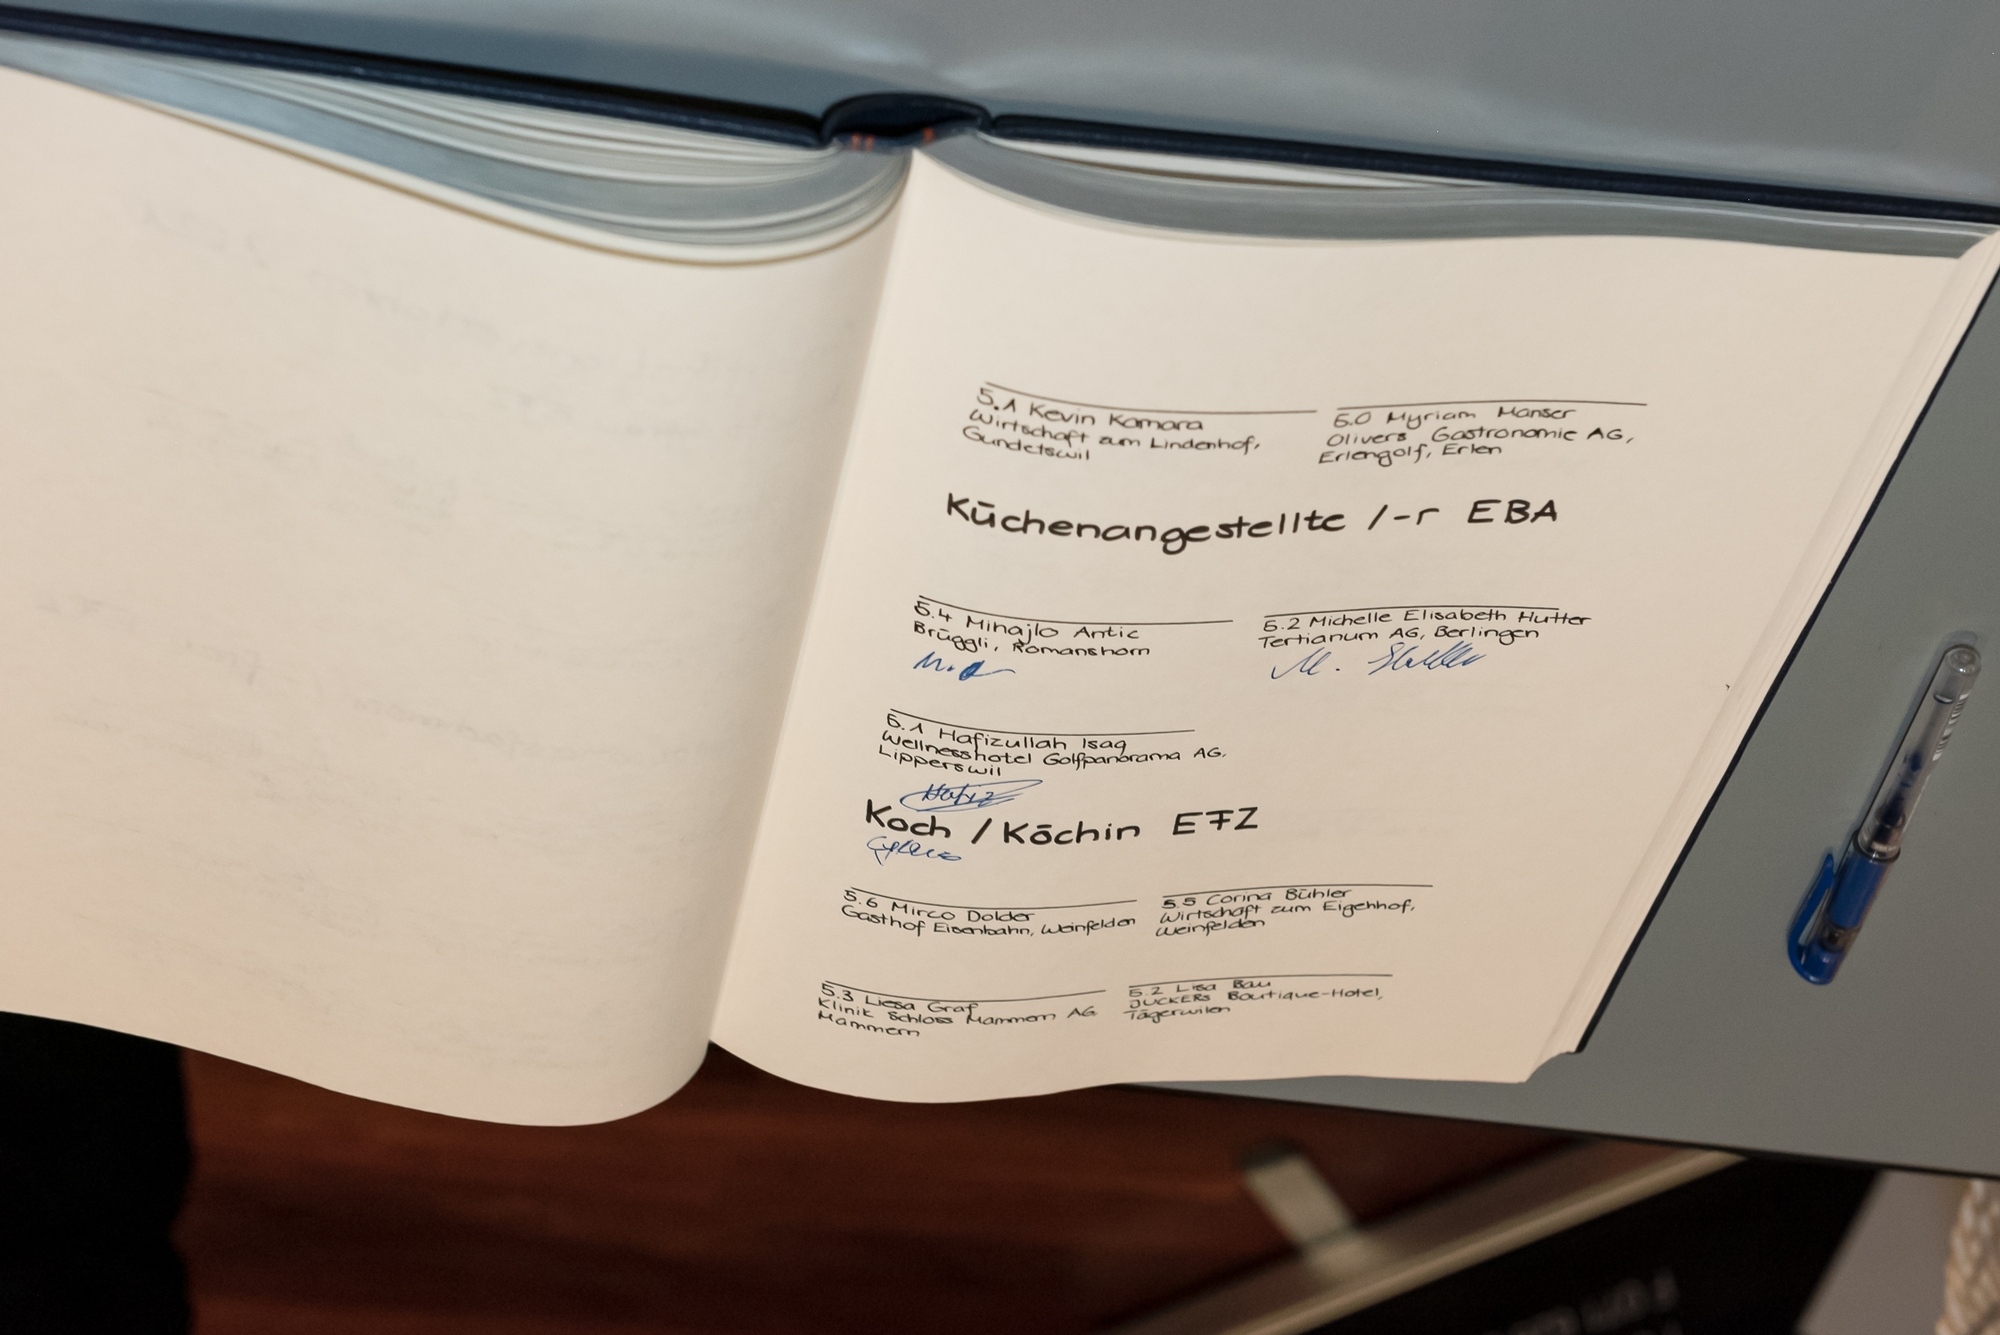 5.1 Kevin Kamara
Wirtschaft zum Lindenhof,
Gundetswil
5.0 Myriam Manser
Olivers Gastronomie AG,
Erlengolf, Erlen
Küchenangestellte /-r EBA
5.4 Mihajlo Antic
Brüggli, Romanshorn
5.2 Michelle Elisabeth Hutter
Tertianum AG, Berlingen
M. Hutter
5.1 Hafizullah Isaq
Wellnesshotel Golfpanorama AG,
Lipperswil
Hafiz
Koch /Köchin EFZ
5.6 Mirco Dolder
Gasthof Eisenbahn, Weinfelden
5.5 Corina Bühler
Wirtschaft zum Eigenhof,
Weinfelden
5.3 Liesa Graf
Klinik Schloss Mammern AG
Mammern
5.2 Lisa Bau
JUCKERs Boutique-Hotel,
Tägerwilen